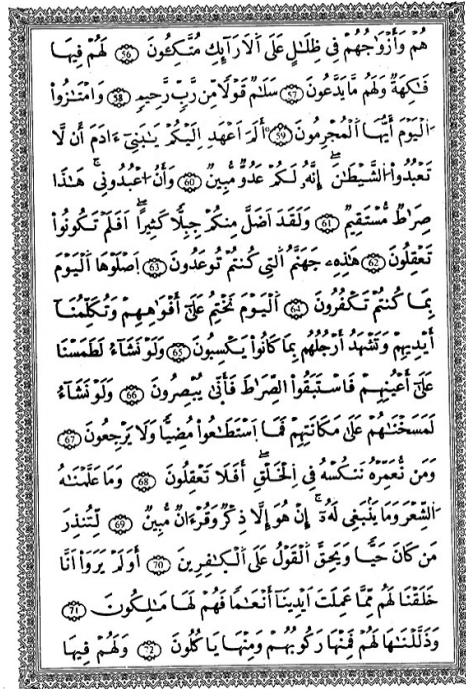 هُمْ وَأَزْوَاجُهُمْ فِي ظِلَالٍ عَلَى الْأَرَائِكِ مُتَّكِئُونَ 56 لَهُمْ فِيهَا
فَاكِهَةٌ وَلَهُم مَّا يَدَّعُونَ 57 سَلَامٌ قَوْلًا مِّن رَّبٍّ رَّحِيمٍ 58 وَامْتَازُوا
الْيَوْمَ أَيُّهَا الْمُجْرِمُونَ 59 أَلَمْ أَعْهَدْ إِلَيْكُمْ يَابَنِي ءَادَمَ أَن لَّا
تَعْبُدُوا الشَّيْطَانَ إِنَّهُ لَكُمْ عَدُوٌّ مُّبِينٌ 60 وَأَنِ اعْبُدُونِي هَاذَا
صِرَاطٌ مُّسْتَقِيمٌ 61 وَلَقَدْ أَضَلَّ مِنكُمْ جِبِلًّا كَثِيرًا أَفَلَمْ تَكُونُوا
تَعْقِلُونَ 62 هَاذِهِ جَهَنَّمُ الَّتِي كُنتُمْ تُوعَدُونَ 63 اصْلَوْهَا الْيَوْمَ
بِمَا كُنتُمْ تَكْفُرُونَ 64 الْيَوْمَ نَخْتِمُ عَلَى أَفْوَاهِهِمْ وَتُكَلِّمُنَا
أَيْدِيهِمْ وَتَشْهَدُ أَرْجُلُهُم بِمَا كَانُوا يَكْسِبُونَ 65 وَلَوْ نَشَاءُ لَطَمَسْنَا
عَلَى أَعْيُنِهِمْ فَاسْتَبَقُوا الصِّرَاطَ فَأَنَّى يُبْصِرُونَ 66 وَلَوْ نَشَاءُ
لَمَسَخْنَاهُمْ عَلَى مَكَانَتِهِمْ فَمَا اسْتَطَاعُوا مُضِيًّا وَلَا يَرْجِعُونَ 67
وَمَن نُّعَمِّرْهُ نُنَكِّسْهُ فِي الْخَلْقِ أَفَلَا تَعْقِلُونَ 68 وَمَا عَلَّمْنَاهُ
الشِّعْرَ وَمَا يَنبَغِي لَهُ إِنْ هُوَ إِلَّا ذِكْرٌ وَقُرْءَانٌ مُّبِينٌ 69 لِّتُنذِرَ
مَن كَانَ حَيًّا وَيَحِقَّ الْقَوْلُ عَلَى الْكَافِرِينَ 70 أَوَلَمْ يَرَوْا أَنَّا
خَلَقْنَا لَهُم مِّمَّا عَمِلَتْ أَيْدِينَا أَنْعَامًا فَهُمْ لَهَا مَالِكُونَ 71
وَذَلَّلْنَاهَا لَهُمْ فَمِنْهَا رَكُوبُهُمْ وَمِنْهَا يَاكُلُونَ 72 وَلَهُمْ فِيهَا